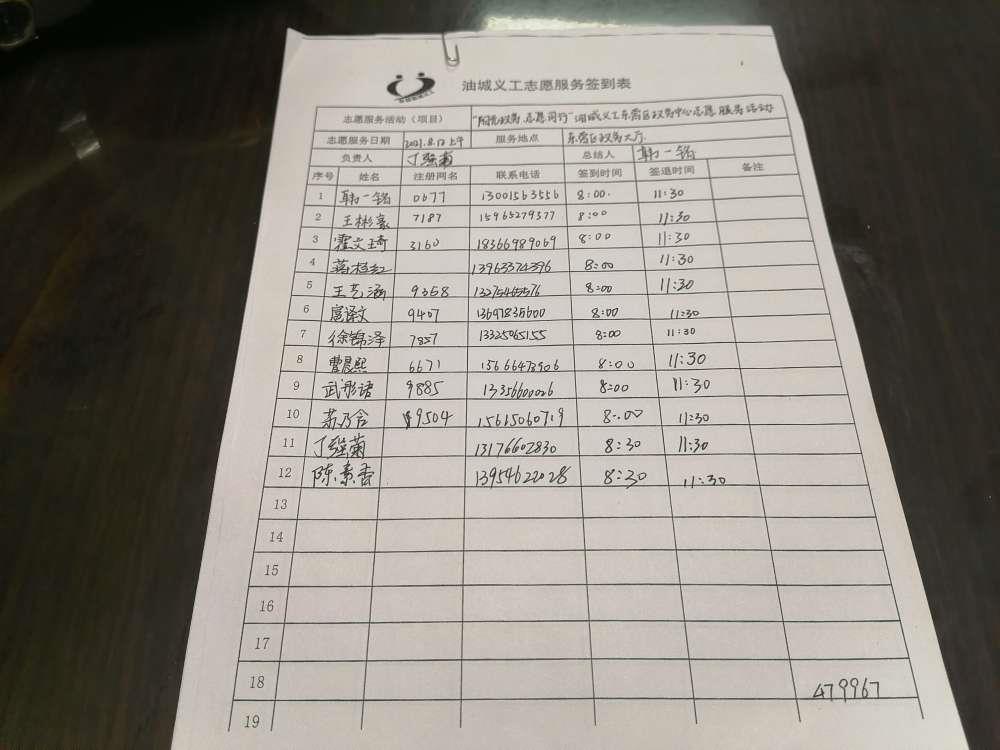 油城义工志愿服务签到表
志愿服务活动（项目） “阳光政务 志愿同行”油城义工东营区政务中心志愿服务活动
志愿服务日期 2021.8.12上午 服务地点 东营区政务大厅
负责人 丁强菊 总结人 韩一铭
序号 姓名 注册网名 联系电话 签到时间 签退时间 备注
1 韩一铭 0677 13001563556 8:00 11:30
2 王彬豪 7187 15965279377 8:00 11:30
3 霍文琦 3160 18366989069 8:00 11:30
4 蒋桂红 13963374396 8:00 11:30
5 王艺涵 9358 13275465576 8:00 11:30
6 扈译文 9407 13697835600 8:00 11:30
7 徐锦泽 7857 13325065155 8:00 11:30
8 曹晨熙 6671 15666473906 8:00 11:30
9 武彤语 9885 13356600026 8:00 11:30
10 苏乃含 9504 15615060719 8:00 11:30
11 丁强菊 13176602830 8:30 11:30
12 陈素香 13954622028 8:30 11:30
13
14
15
16
17
18 479967
19